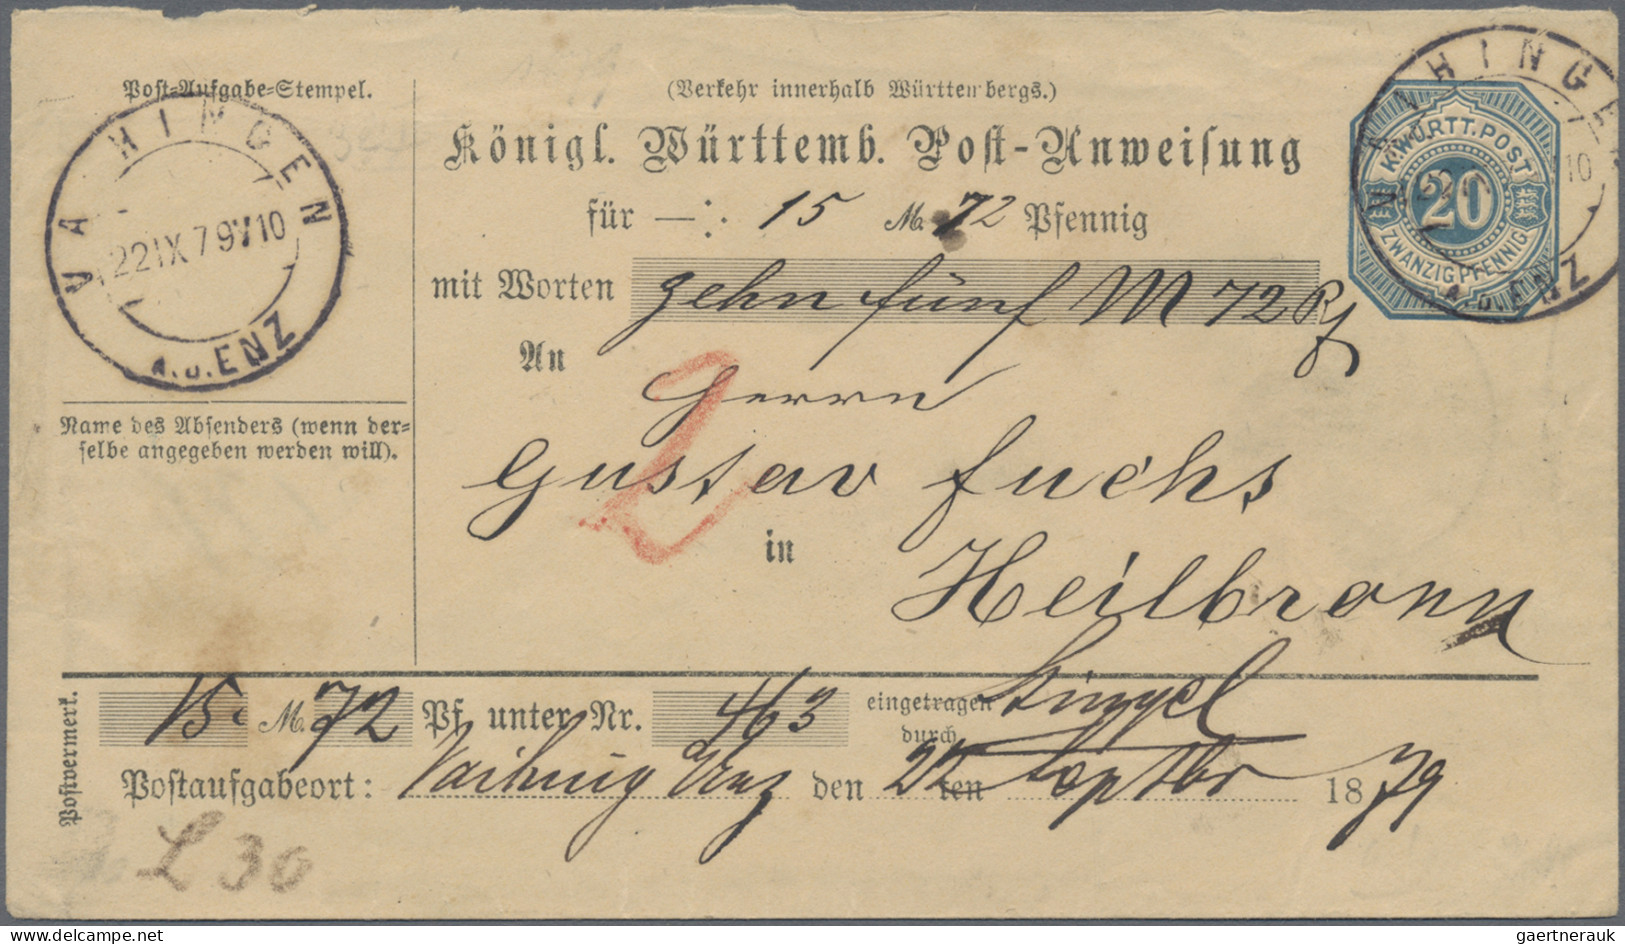 Post-Aufgabe-Stempel.
VAIHINGEN
22 IX 79 V 10
A.D.ENZ
Name des Absenders (wenn der-
selbe angegeben werden will).
(Verkehr innerhalb Württembergs.)
Königl. Württemb. Post-Anweisung
für —: 15 M. 72 Pfennig
mit Worten zehn fünf M 72 Pf
An
Herrn
Gustav Fuchs
in
Heilbronn
2
K.WÜRTT.POST
20
ZWANZIG PFENNIG
VAIHINGEN
10
A.D.ENZ
Postvermerk.
15 M. 72 Pf. unter Nr. 463 eingetragen
durch
Postaufgabeort: Vaihing Enz den 22ten Septbr 1879
L 30
gaertnerauk